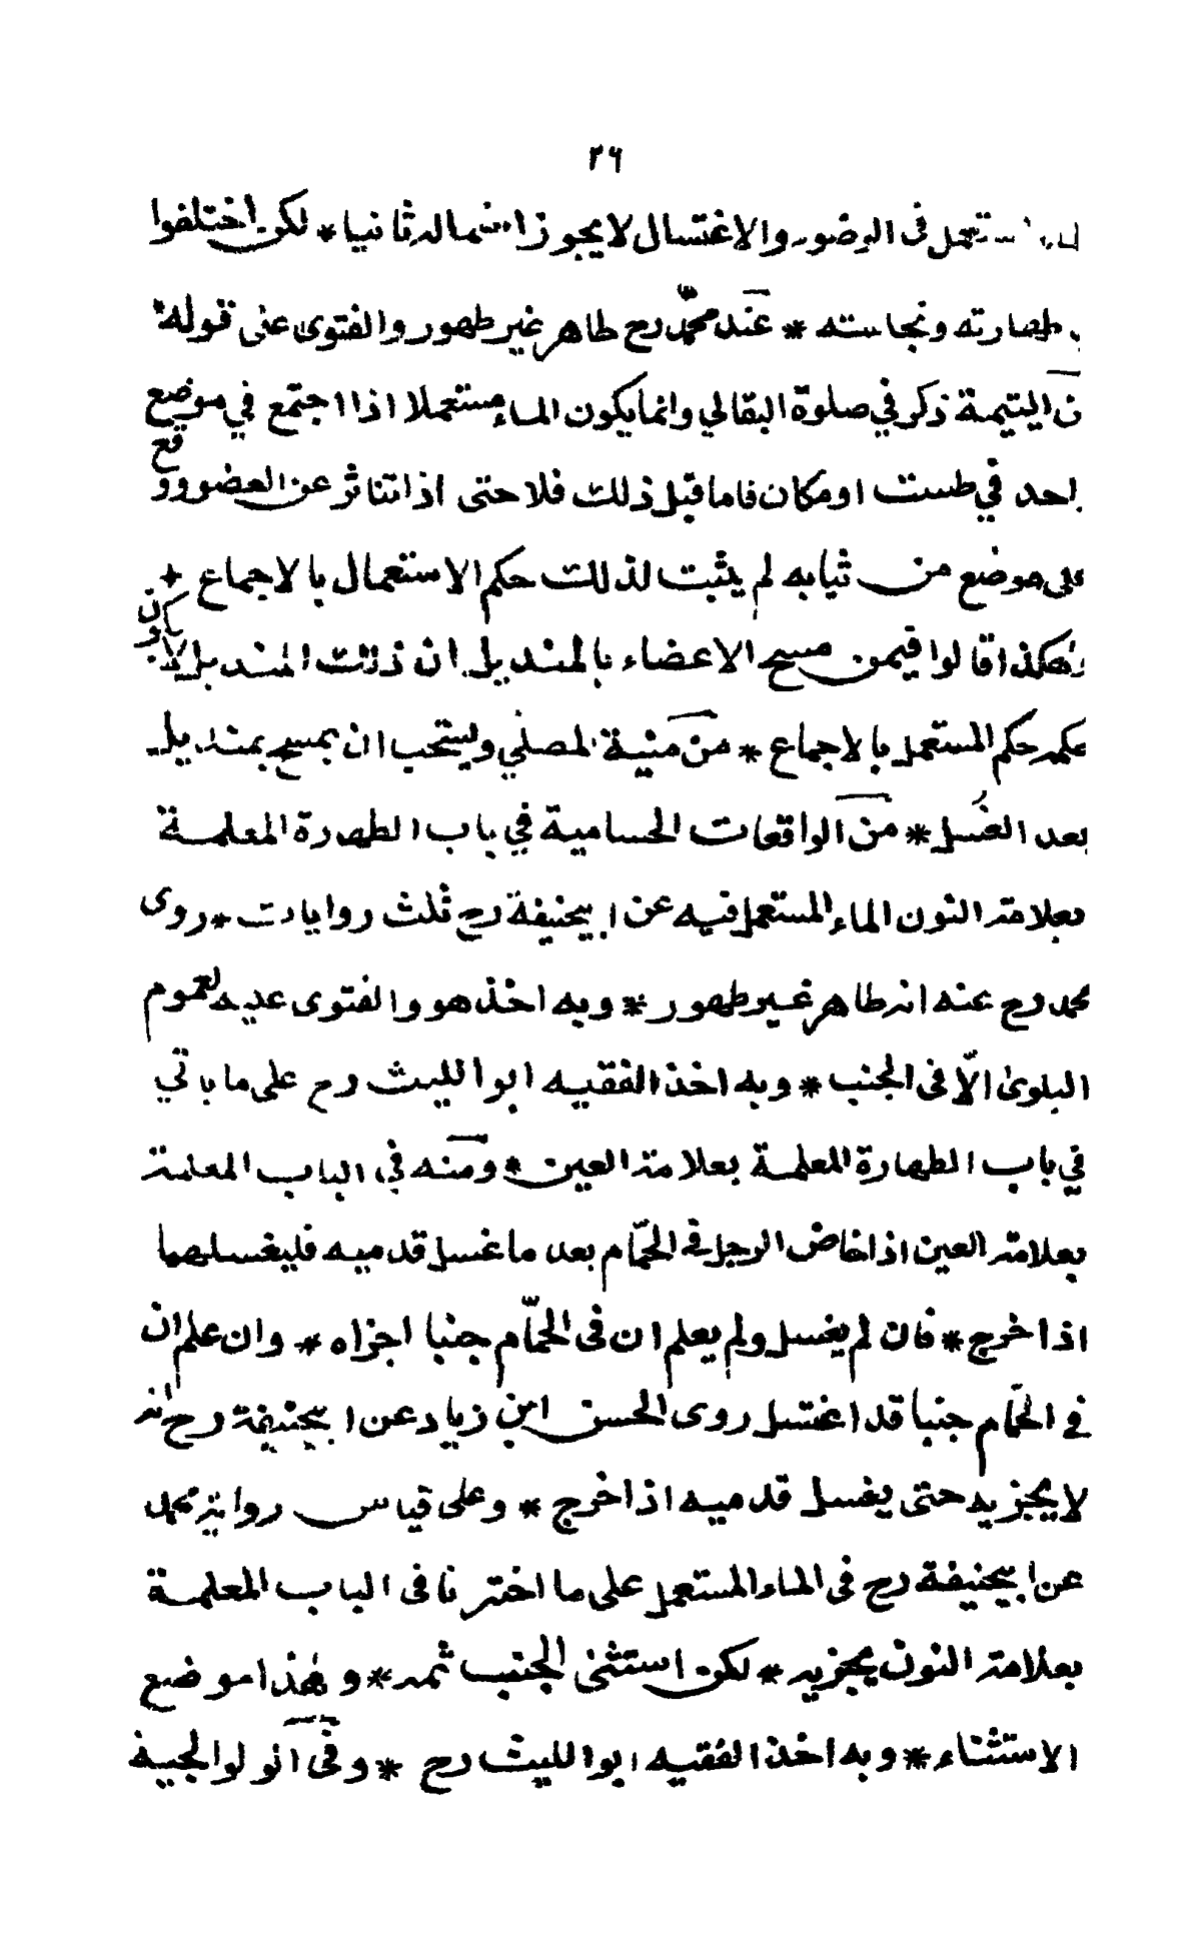 ٢٦
المستعمل فى الوضوء والاغتسال لا يجوز استعماله ثانيا * لكن اختلفوا
طهارته ونجاسته * عند محمّد رح طاهر غير طهور والفتوى على قوله *
ن اليتيمة ذكر في صلوة البقالي وانما يكون الماء مستعملا اذا اجتمع في موضع
احد في طست او مكان فاما قبل ذلك فلا حتى اذا تناثر عن العضو ووقع
على موضع من ثيابه لم يثبت لذلك حكم الاستعمال بالاجماع +
وهكذا قالوا فيمن مسح الاعضاء بالمنديل ان ذلك المنديل لا يكون
حكمه حكم المستعمل بالاجماع * من منية المصلي ويستحب ان يمسح بمنديل
بعد الغسل * من الواقعات الحسامية في باب الطهارة المعلمة
بعلامة النون الماء المستعمل فيه عن ابيحنيفة رح ثلث روايات * روى
محمد رح عنه انه طاهر غير طهور * وبه اخذ هو والفتوى عليه لعموم
البلوى الاّ فى الجنب * وبه اخذ الفقيه ابو الليث رح على ما ياتي
في باب الطهارة المعلمة بعلامة العين * ومنه في الباب المعلمة
بعلامة العين اذا خاض الرجل فى الحمّام بعد ما غسل قدميه فليغسلهما
اذا خرج * فان لم يغسل ولم يعلم ان فى الحمّام جنبا اجزاه * وان علم ان
في الحمّام جنبا قد اغتسل روى الحسن ابن زياد عن ابيحنيفة رح انه
لا يجزيه حتى يغسل قدميه اذا خرج * وعلى قياس رواية محمد
عن ابيحنيفة رح فى الماء المستعمل على ما اخترنا فى الباب المعلمة
بعلامة النون يجزيه * لكن استثنى الجنب ثمه * وهذا موضع
الاستثناء * وبه اخذ الفقيه ابو الليث رح * وفى الولوالجية